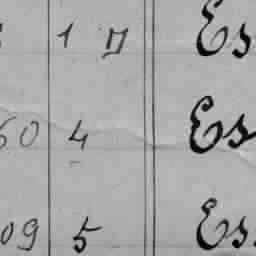 1 П Es
60 4 Es
09 5 Es